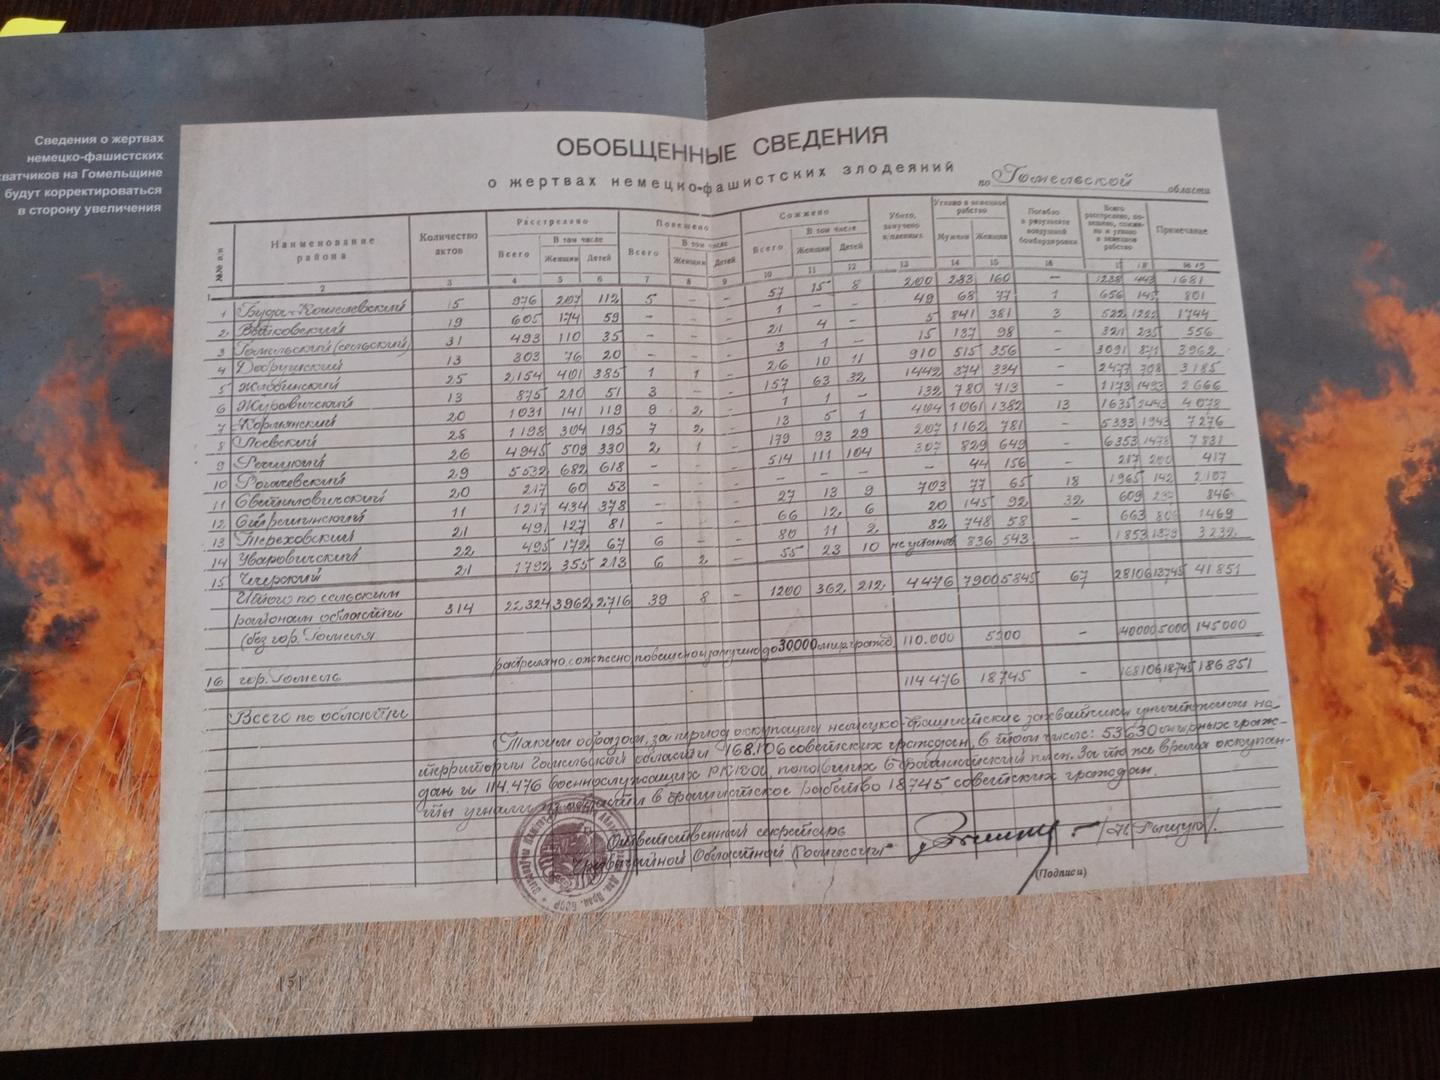 Сведения о жертвах
немецко-фашистских
хватчиков на Гомельщине
будут корректироваться
в сторону увеличения
ОБОБЩЕННЫЕ СВЕДЕНИЯ
о жертвах немецко-фашистских злодеяний по Гомельской области
№№ п/п Наименование района Количество актов Расстреляно Повешено Сожжено Убито, замучено в/пленных Угнано в немецкое рабство Погибло в результате воздушной бомбардировки Всего расстреляно, повешено, сожжено и угнано в немецкое рабство Примечание
Всего В том числе Женщин Детей Всего В том числе Женщин Детей Всего В том числе Женщин Детей Мужчин Женщин
1 2 3 4 5 6 7 8 9 10 11 12 13 14 15 16 17 18
1 Буда-Кошелевский 15 976 207 112 5 - - 57 15 8 200 283 160 - 1238 443 1681
2 19 605 174 59 - - - 1 - - 49 68 77 1 656 145 801
3 Гомельский (сельский) 31 493 110 35 - - - 21 4 - 5 841 381 3 522 1222 1744
4 Добрушский 13 303 76 20 - - - 3 1 - 15 137 98 - 321 235 556
5 Жлобинский 25 2154 401 385 1 1 - 26 10 11 910 515 356 - 3091 871 3962
6 Журавичский 13 875 210 51 3 - - 157 63 32 1442 374 334 - 2477 708 3185
7 Кормянский 20 1031 141 119 9 2 - 1 1 - 132 780 713 - 1173 1493 2666
8 Лоевский 28 1198 304 195 7 2 - 13 5 1 404 1061 1382 13 1635 2443 4078
9 Речицкий 26 4945 509 330 2 1 - 179 93 29 207 1162 781 - 5333 1943 7276
10 Рогачевский 29 5532 682 618 - - - 514 111 104 307 829 649 - 6353 1478 7831
11 Светиловичский 20 217 60 53 - - - - - - - 44 156 - 217 200 417
12 Стрешинский 11 1217 434 378 - - - 27 13 9 703 77 65 18 1965 142 2107
13 Тереховский 21 491 127 81 - - - 66 12 6 20 145 92 32 609 237 846
14 Уваровичский 22 495 172 67 6 - - 80 11 2 82 748 58 - 663 806 1469
15 Чечерский 21 1792 355 213 6 2 - 55 23 10 не установ 836 543 - 1853 1379 3232
Итого по сельским
районам области 314 22324 3962 2716 39 8 - 1200 362 212 4476 7900 5845 67 28106 13745 41851
(без гор. Гомеля
16 гор. Гомель расстреляно, сожжено повешено и замучено до 30000 мир. гражд. 110.000 5000 - 140000 5000 145000
Всего по области 114476 18745 - 168106 18745 186851
Таким образом, за период оккупации немецко-фашистские захватчики уничтожили на
территории Гомельской области 168.106 советских граждан, в том числе: 53630 мирных граж-
дан и 114.476 военнослужащих РККА, попавших в фашистский плен. За то же время оккупан-
ты угнали из области в фашистское рабство 18745 советских граждан.
Ответственный секретарь
Чрезвычайной Областной Комиссии
(Подписи)
[5]